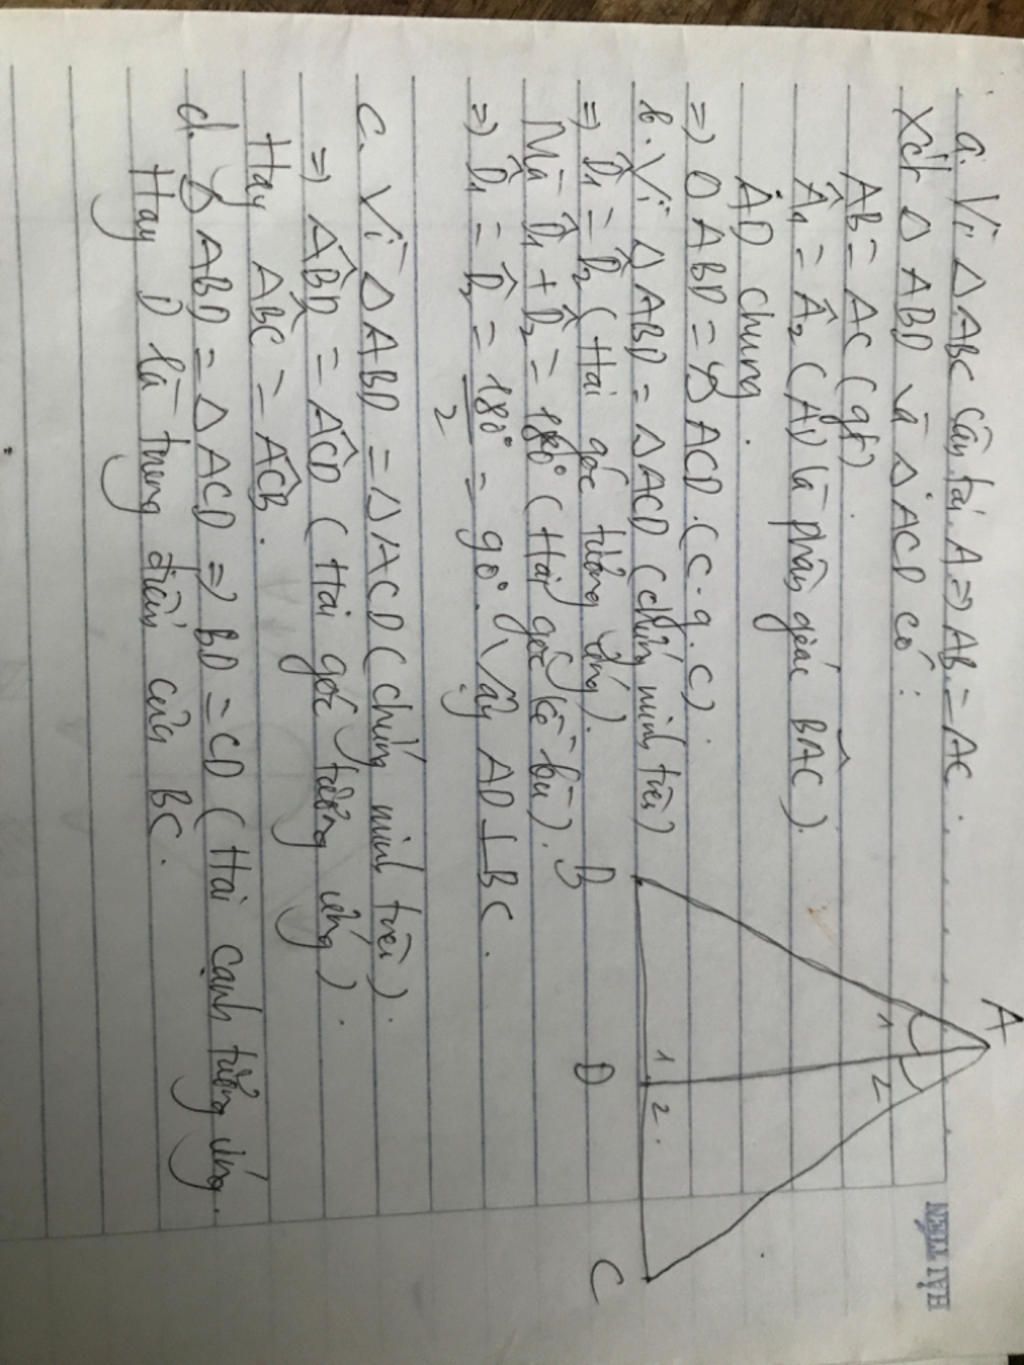 HẢI TIẾN
a. Vì △ABC cân tại A ⇒ AB = AC.
Xét △ABD và △ACD có:
AB = AC (gt).
Â1 = Â2 (AD là phân giác BAC).
AD chung.
⇒ △ABD = △ACD (c.g.c).
b. Vì △ABD = △ACD (chứng minh trên)
⇒ D̂1 = D̂2 (Hai góc tương ứng).
Mà D̂1 + D̂2 = 180° (Hai góc kề bù).
⇒ D̂1 = D̂2 = 180°/2 = 90°. Vậy AD ⊥ BC.
c. Vì △ABD = △ACD (chứng minh trên).
⇒ ABD = ACD (Hai góc tương ứng).
Hay ABC = ACB.
d. △ABD = △ACD ⇒ BD = CD (Hai cạnh tương ứng.
Hay D là trung điểm của BC.
A
1 2
1 2
B D C